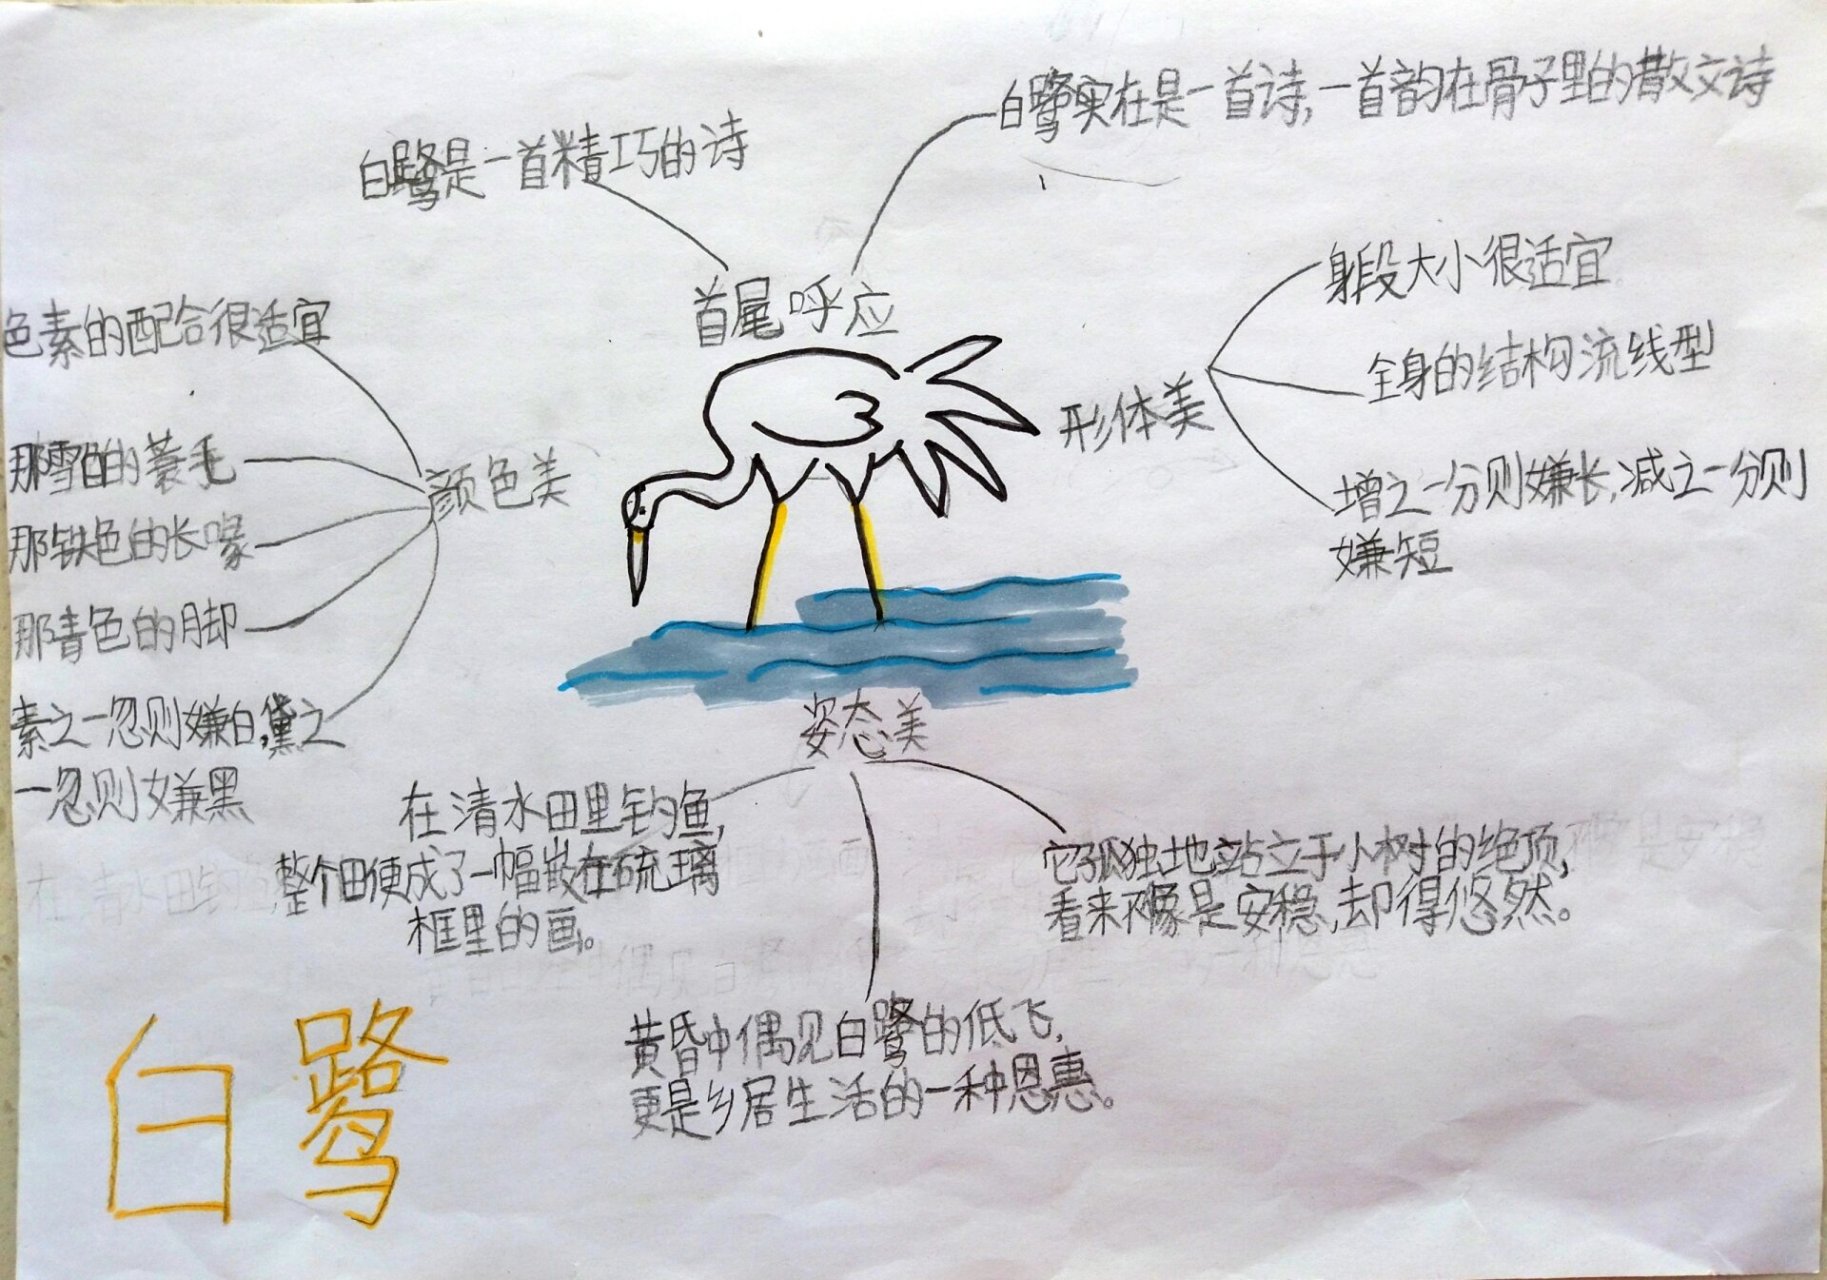 白鹭实在是一首诗,一首韵在骨子里的散文诗
白鹭是一首精巧的诗
首尾呼应
身段大小很适宜
全身的结构流线型
形体美
增之一分则嫌长,减之一分则
嫌短
色素的配合很适宜
那雪白的蓑毛
颜色美
那铁色的长喙
那青色的脚
素之一忽则嫌白,黛之
一忽则嫌黑
姿态美
在清水田里钓鱼,
整个田便成了一幅嵌在硫璃
框里的画。
它孤独地站立于小树的绝顶,
看来不像是安稳,却得悠然。
黄昏中偶见白鹭的低飞,
更是乡居生活的一种恩惠。
白鹭